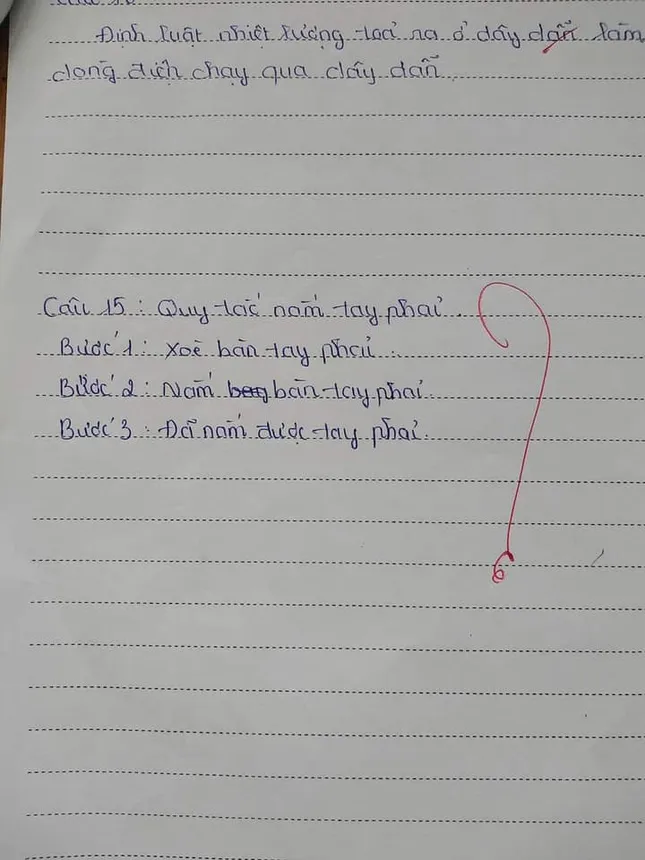 Định luật nhiệt lượng toả ra ở dây dẫn làm
dòng địch chạy qua dây dẫn
Câu 15: Quy tắc nắm tay phải.
Bước 1: Xoè bàn tay phải.
Bước 2: Nắm bàn tay phải
Bước 3: Đã nắm được tay phải.